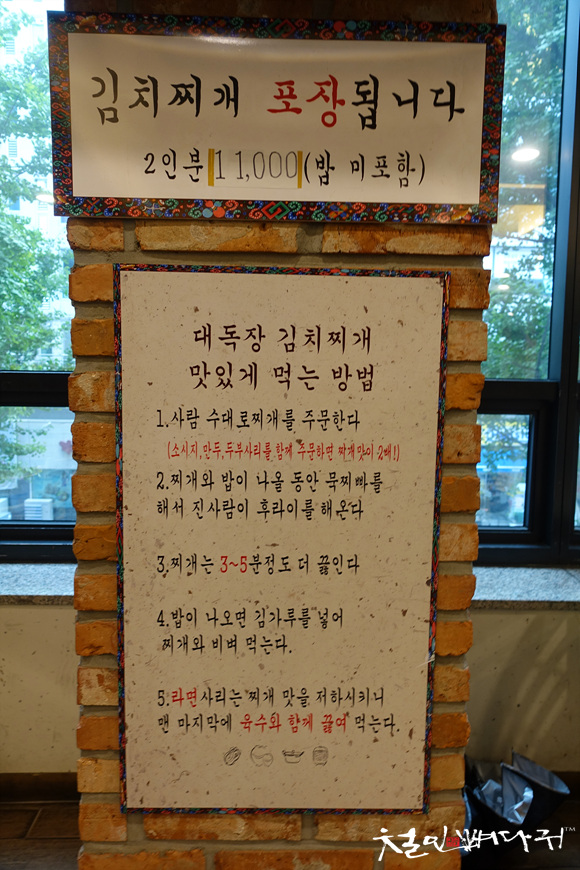 김치찌개 포장됩니다
2인분 11,000 (밥 미포함)
대독장 김치찌개
맛있게 먹는 방법
1.사람 수대로찌개를 주문한다
(소시지,만두,두부사리를 함께 주문하면 찌개맛이 2배!)
2.찌개와 밥이 나올 동안 묵찌빠를
해서 진사람이 후라이를 해온다
3.찌개는 3~5분정도 더 끓인다
4.밥이 나오면 김가루를 넣어
찌개와 비벼 먹는다.
5.라면사리는 찌개 맛을 저하시키니
맨 마지막에 육수와 함께 끓여 먹는다.
철인뼈다귀™